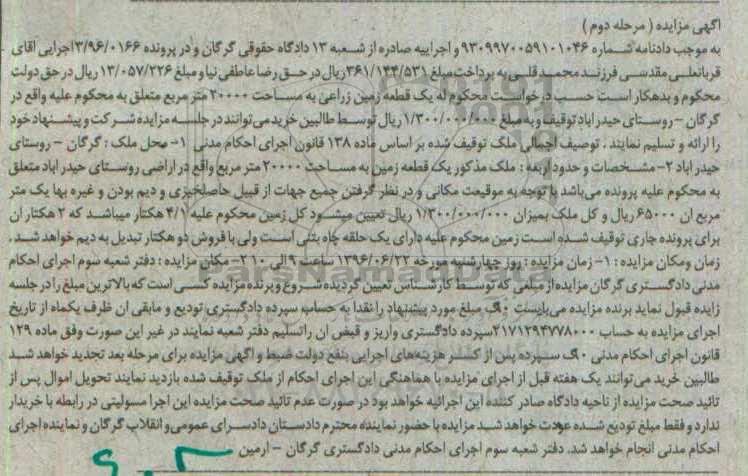 آگهی مزایده (مرحله دوم)
به موجب دادنامه شماره ۹۳۰۹۹۷۰۰۵۹۱۰۱۰۴۶ و اجراییه صادره از شعبه ۱۳ دادگاه حقوقی گرگان و در پرونده ۳/۹۶/۰۱۶۶اجرایی آقای
قربانعلی مقدسی فرزند محمد قلی به پرداخت مبلغ ۳۶۱/۱۴۴/۵۳۱ریال در حق رضا عاطفی نیا و مبلغ ۱۳/۰۵۷/۲۲۶ ریال در حق دولت
محکوم و بدهکار است حسب درخواست محکوم له یک قطعه زمین زراعی به مساحت ۲۰۰۰۰ متر مربع متعلق به محکوم علیه واقع در
گرگان – روستای حیدر اباد توقیف و به مبلغ ۱/۳۰۰/۰۰۰/۰۰۰ ریال توسط طالبین خرید می توانند در جلسه مزایده شرکت و پیشنهاد خود
را ارائه و تسلیم نمایند . توصیف اجمالی ملک توقیف شده بر اساس ماده ۱۳۸ قانون اجرای احکام مدنی ۱- محل ملک : گرگان – روستای
حیدر اباد ۲- مشخصات و حدود اربعه : ملک مذکور یک قطعه زمین به مساحت ۲۰۰۰۰ متر مربع واقع در اراضی روستای حیدر اباد متعلق
به محکوم علیه پرونده می باشد با توجه به موقیعت مکانی و در نظر گرفتن جمیع جهات از قبیل حاصلخیزی و دیم بودن و غیره بها یک متر
مربع ان ۶۵۰۰۰ ریال و کل ملک بمیزان ۱/۳۰۰/۰۰۰/۰۰۰ ریال تعیین میشود کل زمین محکوم علیه ۴/۱ هکتار میباشد که ۲ هکتار ان
برای پرونده جاری توقیف شده است زمین محکوم علیه دارای یک حلقه چاه بتنی است ولی با فروش دو هکتار تبدیل به دیم خواهد شد .
زمان ومکان مزایده : ۱- زمان مزایده : روز چهارشنبه مورخه ۱۳۹۶/۰۶/۲۲ ساعت ۹ الی ۱۰ ۲- مکان مزایده : دفتر شعبه سوم اجرای احکام
مدنی دادگستری گرگان مزایده از مبلغی که توسط کارشناس تعیین گردیده شروع و برنده مزایده کسی است که بالاترین مبلغ را در جلسه
زایده قبول نماید برنده مزایده می بایست ۱۰٪ مبلغ مورد پیشنهاد را نقدا به حساب سپرده دادگستری تودیع و مابقی ان ظرف یکماه از تاریخ
اجرای مزایده به حساب ۲۱۷۱۲۹۴۷۷۸۰۰۰سپرده دادگستری واریز و قبض ان راتسلیم دفتر شعبه نمایند در غیر این صورت وفق ماده ۱۲۹
قانون اجرای احکام مدنی ۱۰٪ سپرده پس از کسر هزینه های اجرایی بنفع دولت ضبط و اگهی مزایده برای مرحله بعد تجدید خواهد شد
طالبین خرید می توانند یک هفته قبل از اجرای مزایده با هماهنگی این اجرای احکام از ملک توقیف شده بازدید نمایند تحویل اموال پس از
تائید صحت مزایده از ناحیه دادگاه صادر کننده این اجرائیه خواهد بود در صورت عدم تائید صحت مزایده این اجرا مسولیتی در رابطه با خریدار
ندارد و فقط مبلغ تودیع شده عودت خواهد شد مزایده با حضور نماینده محترم دادستان دادسرای عمومی و انقلاب گرگان و نماینده اجرای
احکام مدنی انجام خواهد شد. دفتر شعبه سوم اجرای احکام مدنی دادگستری گرگان – ارمین
ParsNamadData